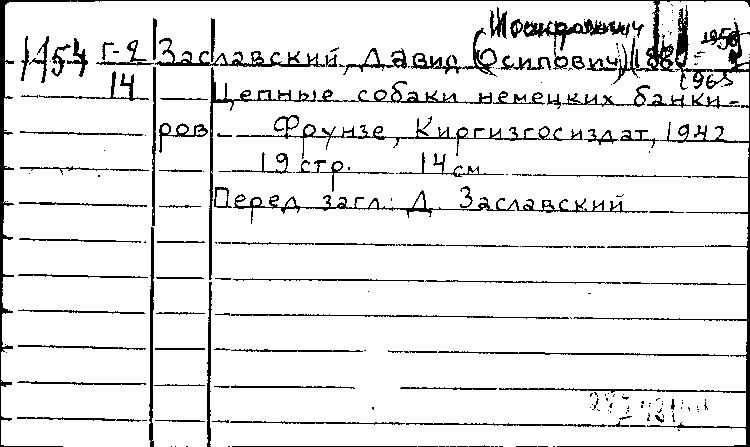 Иосифович
1154 Г-2 Заславский, Давид (Осипович) 1880
1965
14 Цепные собаки немецких банки-
ров Фрунзе, Киргизгосиздат, 1942
19 стр. 14 см
Перед загл: Д. Заславский